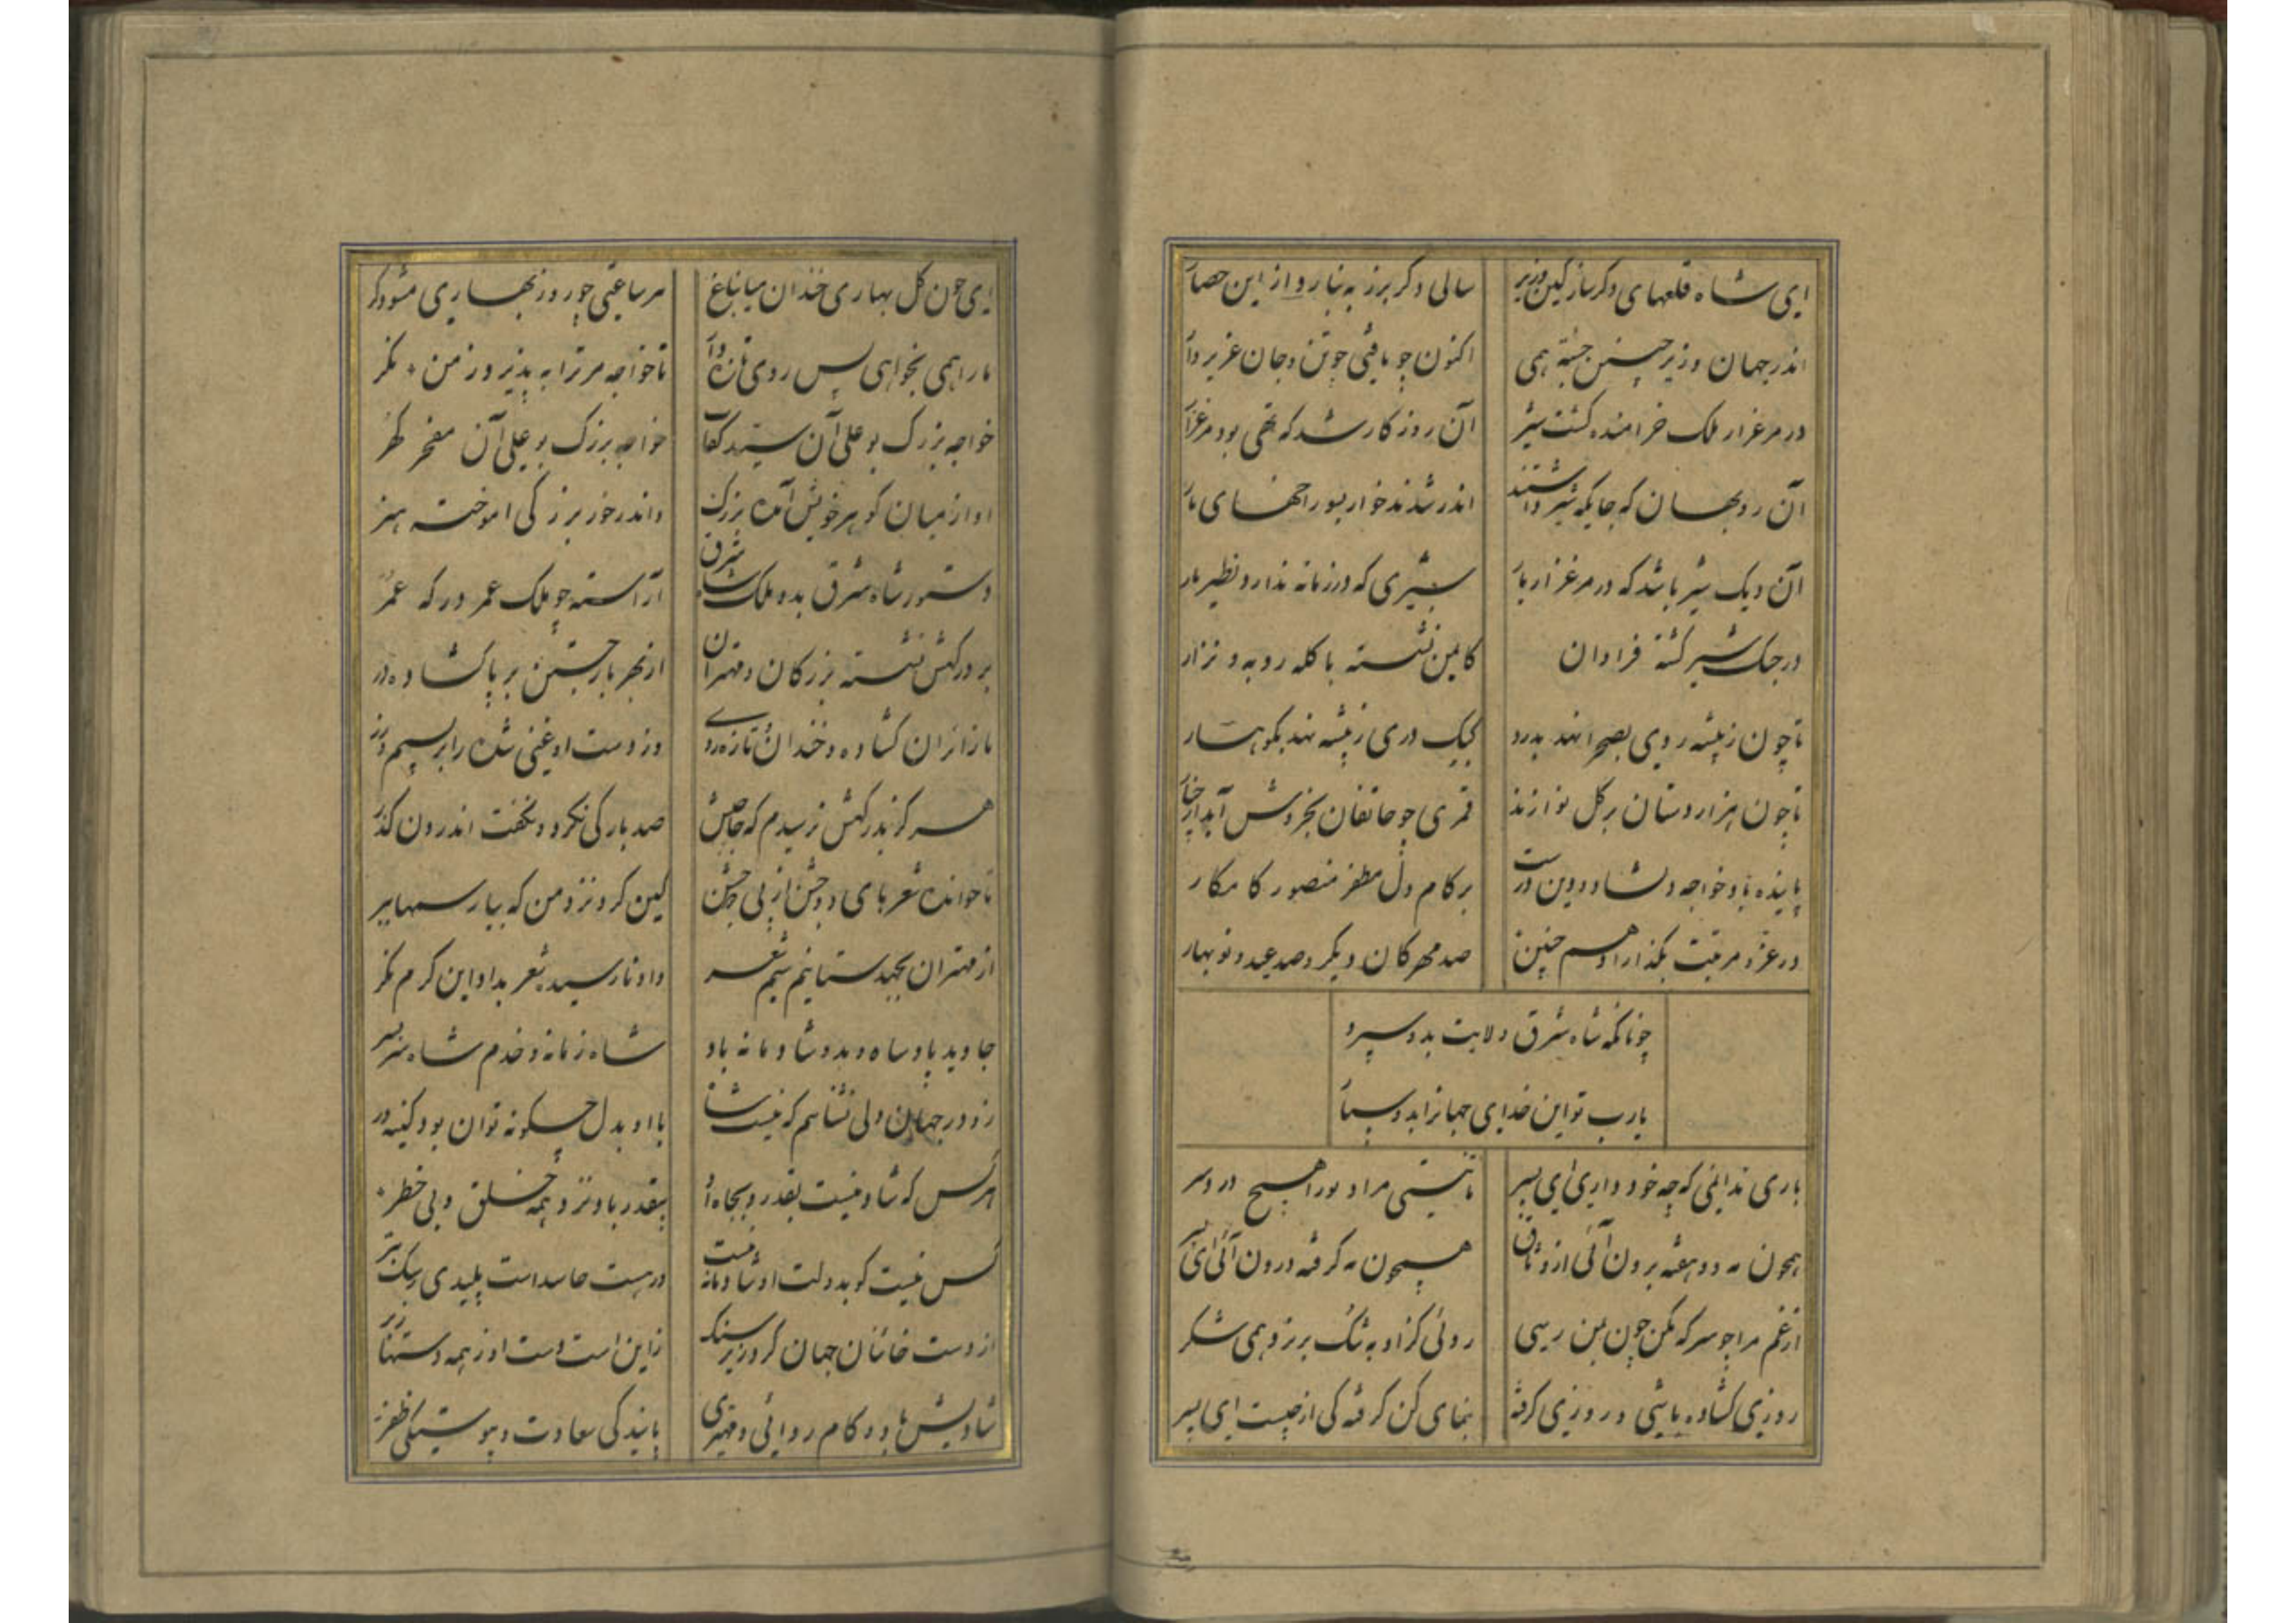 ای شاه قلعهای دکر ساز کین وزیر
سالی دکر برز به بنارد از این حصار
اندر جهان وزیر چنین جسته همی
اکنون چو یافتی چو تن و جان عزیز دار
در مرغزار ملک خرامنده کشت شیر
آن روزکار شد که تهی بود مرغزار
آن روبهان که جایکه شیر داشتند
اندر شدند خوار بسوراخهای مار
آن دیک شیر باشد که در مرغزار یار
شیری که در زمانه ندارد نظیر یار
در جنک شیر کشته فراوان
کامین نشسته با کله روبه و نزار
تا چون ز بیشه روی بصحرا نهد بدرد
کبک دری ز بیشه نهد بکوهسار
تا چون هزاردستان بر کل نوا زند
قمری چو عاشقان بخروش آید از چنار
پاینده باد خواجه و دلشاد و دین درست
بر کام دل مظفر منصور کامکار
در عز و مرتبت بکذاراد هم چنین
صد مهرکان دیکر و صد عید و نوبهار
چونانکه شاه شرق ولایت بدو سپرد
یارب تو این خدای جهانرا بدو سپار
باری ندانی که چه خو داری ای پسر
تا نیستی مرا و ترا هیچ درد سر
همچون مه دو هفته برون آئی از وثاق
همچون مه کرفته درون آئی ای پسر
از غم مرا چو سرکه مکن چون بمن رسی
روئی کزاو به تنک بریزد همی شکر
روزی کشاده باشی و روزی کرفته
بنمای کین کرفته کی از چیست ای پسر
ای چون کل بهاری خندان میان باغ
هر ساعتی چو روز بهاری مشو دکر
ما را همی بخواهی پس روی تازه دار
تا خواجه مر ترا به پذیرد ز من مکر
خواجه بزرک بوعلی آن سید کفات
خواجه بزرک بوعلی آن مفخر کهر
او از میان کوهر خویش آمده بزرک
واندر خور بزرکی اموخته هنر
دستور شاه شرق بدو ملک شاه شرق
آراسته چو ملک عمر در که عمر
بر درکهش نشسته بزرکان و مهتران
از بهر بار جستن بر پا کشاده در
با زائران کشاده و خندان و تازه روی
وز دست او غنی شده زایر بسیم و زر
هرکز بدرکهش نرسیدم که حاجبش
صد بار کی نکرد و نکفت اندرون کذر
ناخوانده شعرهای دو جشن از پی دو جشن
کین کرد نزد من که بیار سیمهای بر
از مهتران بجهد ستانیم سیم شعر
داد نارسیده شعر بداد این کرم نکر
جاوید باد شاه و بدو شادمانه باد
شاه زمانه و خدم شاه سر بسر
زو در جهان دلی نشناسم که نیست شاد
با او بدل چکونه توان بود کینه در
هر کس که شاد نیست بقدر و بجاه او
بیقدر باد نزد همه خلق و بی خطر
کس نیست کو بدولت او شادمانه نیست
ور هست حاسد است پلیدی ز سک بتر
از دست خائنان جهان کرد زیر سنک
زاین است دست او ز همه دستها زبر
شادیش باد و کام روائی و مهتری
پایندکی سعادت و پیوستکی ظفر